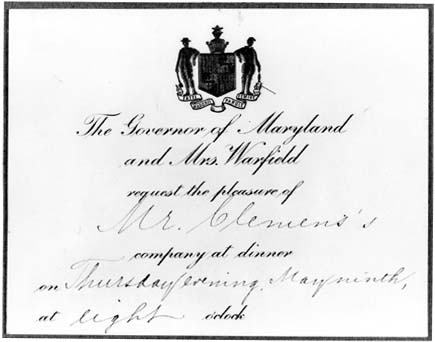 The Governor of Maryland
and Mrs. Warfield
request the pleasure of
Mr. Clemens's
company at dinner
on Thursday evening, May ninth,
at eight o'clock